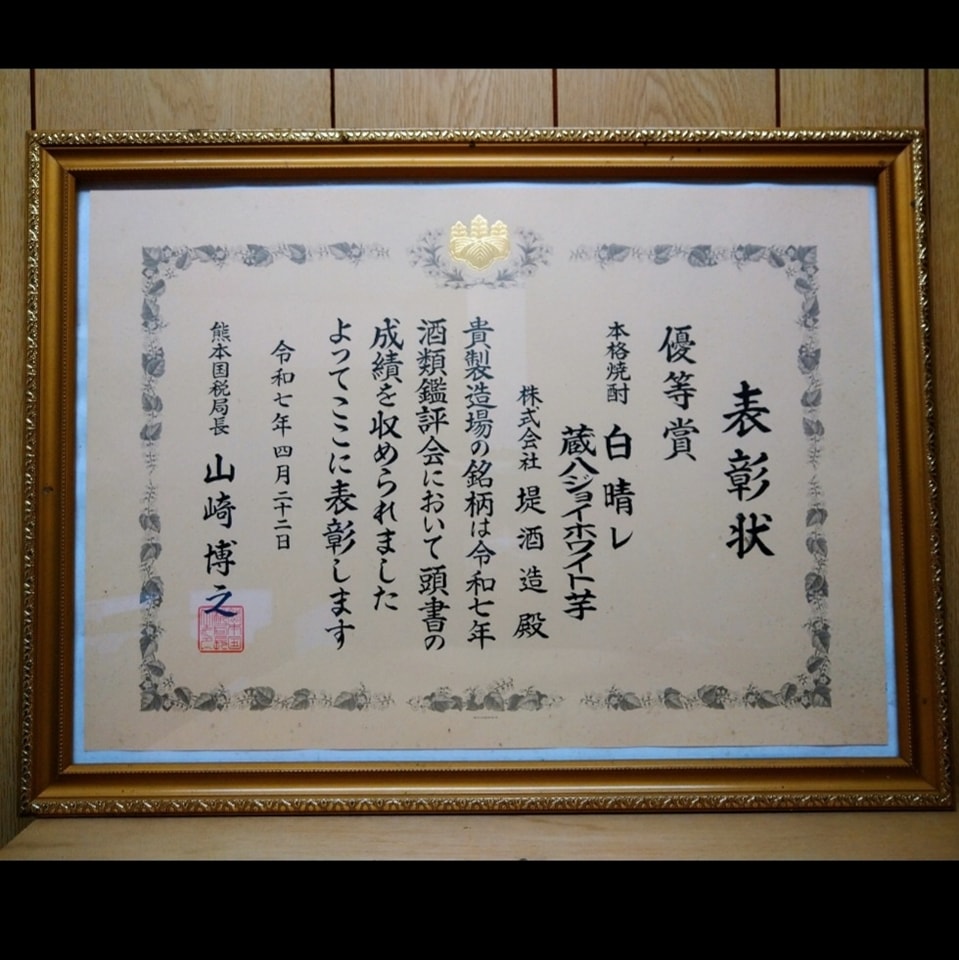 表彰状
優等賞
本格焼酎 白晴レ
蔵八ジョイホワイト芋
株式会社 堤酒造 殿
貴製造場の銘柄は令和七年
酒類鑑評会において頭書の
成績を収められました
よってここに表彰します
令和七年四月二十二日
熊本国税局長 山崎博之